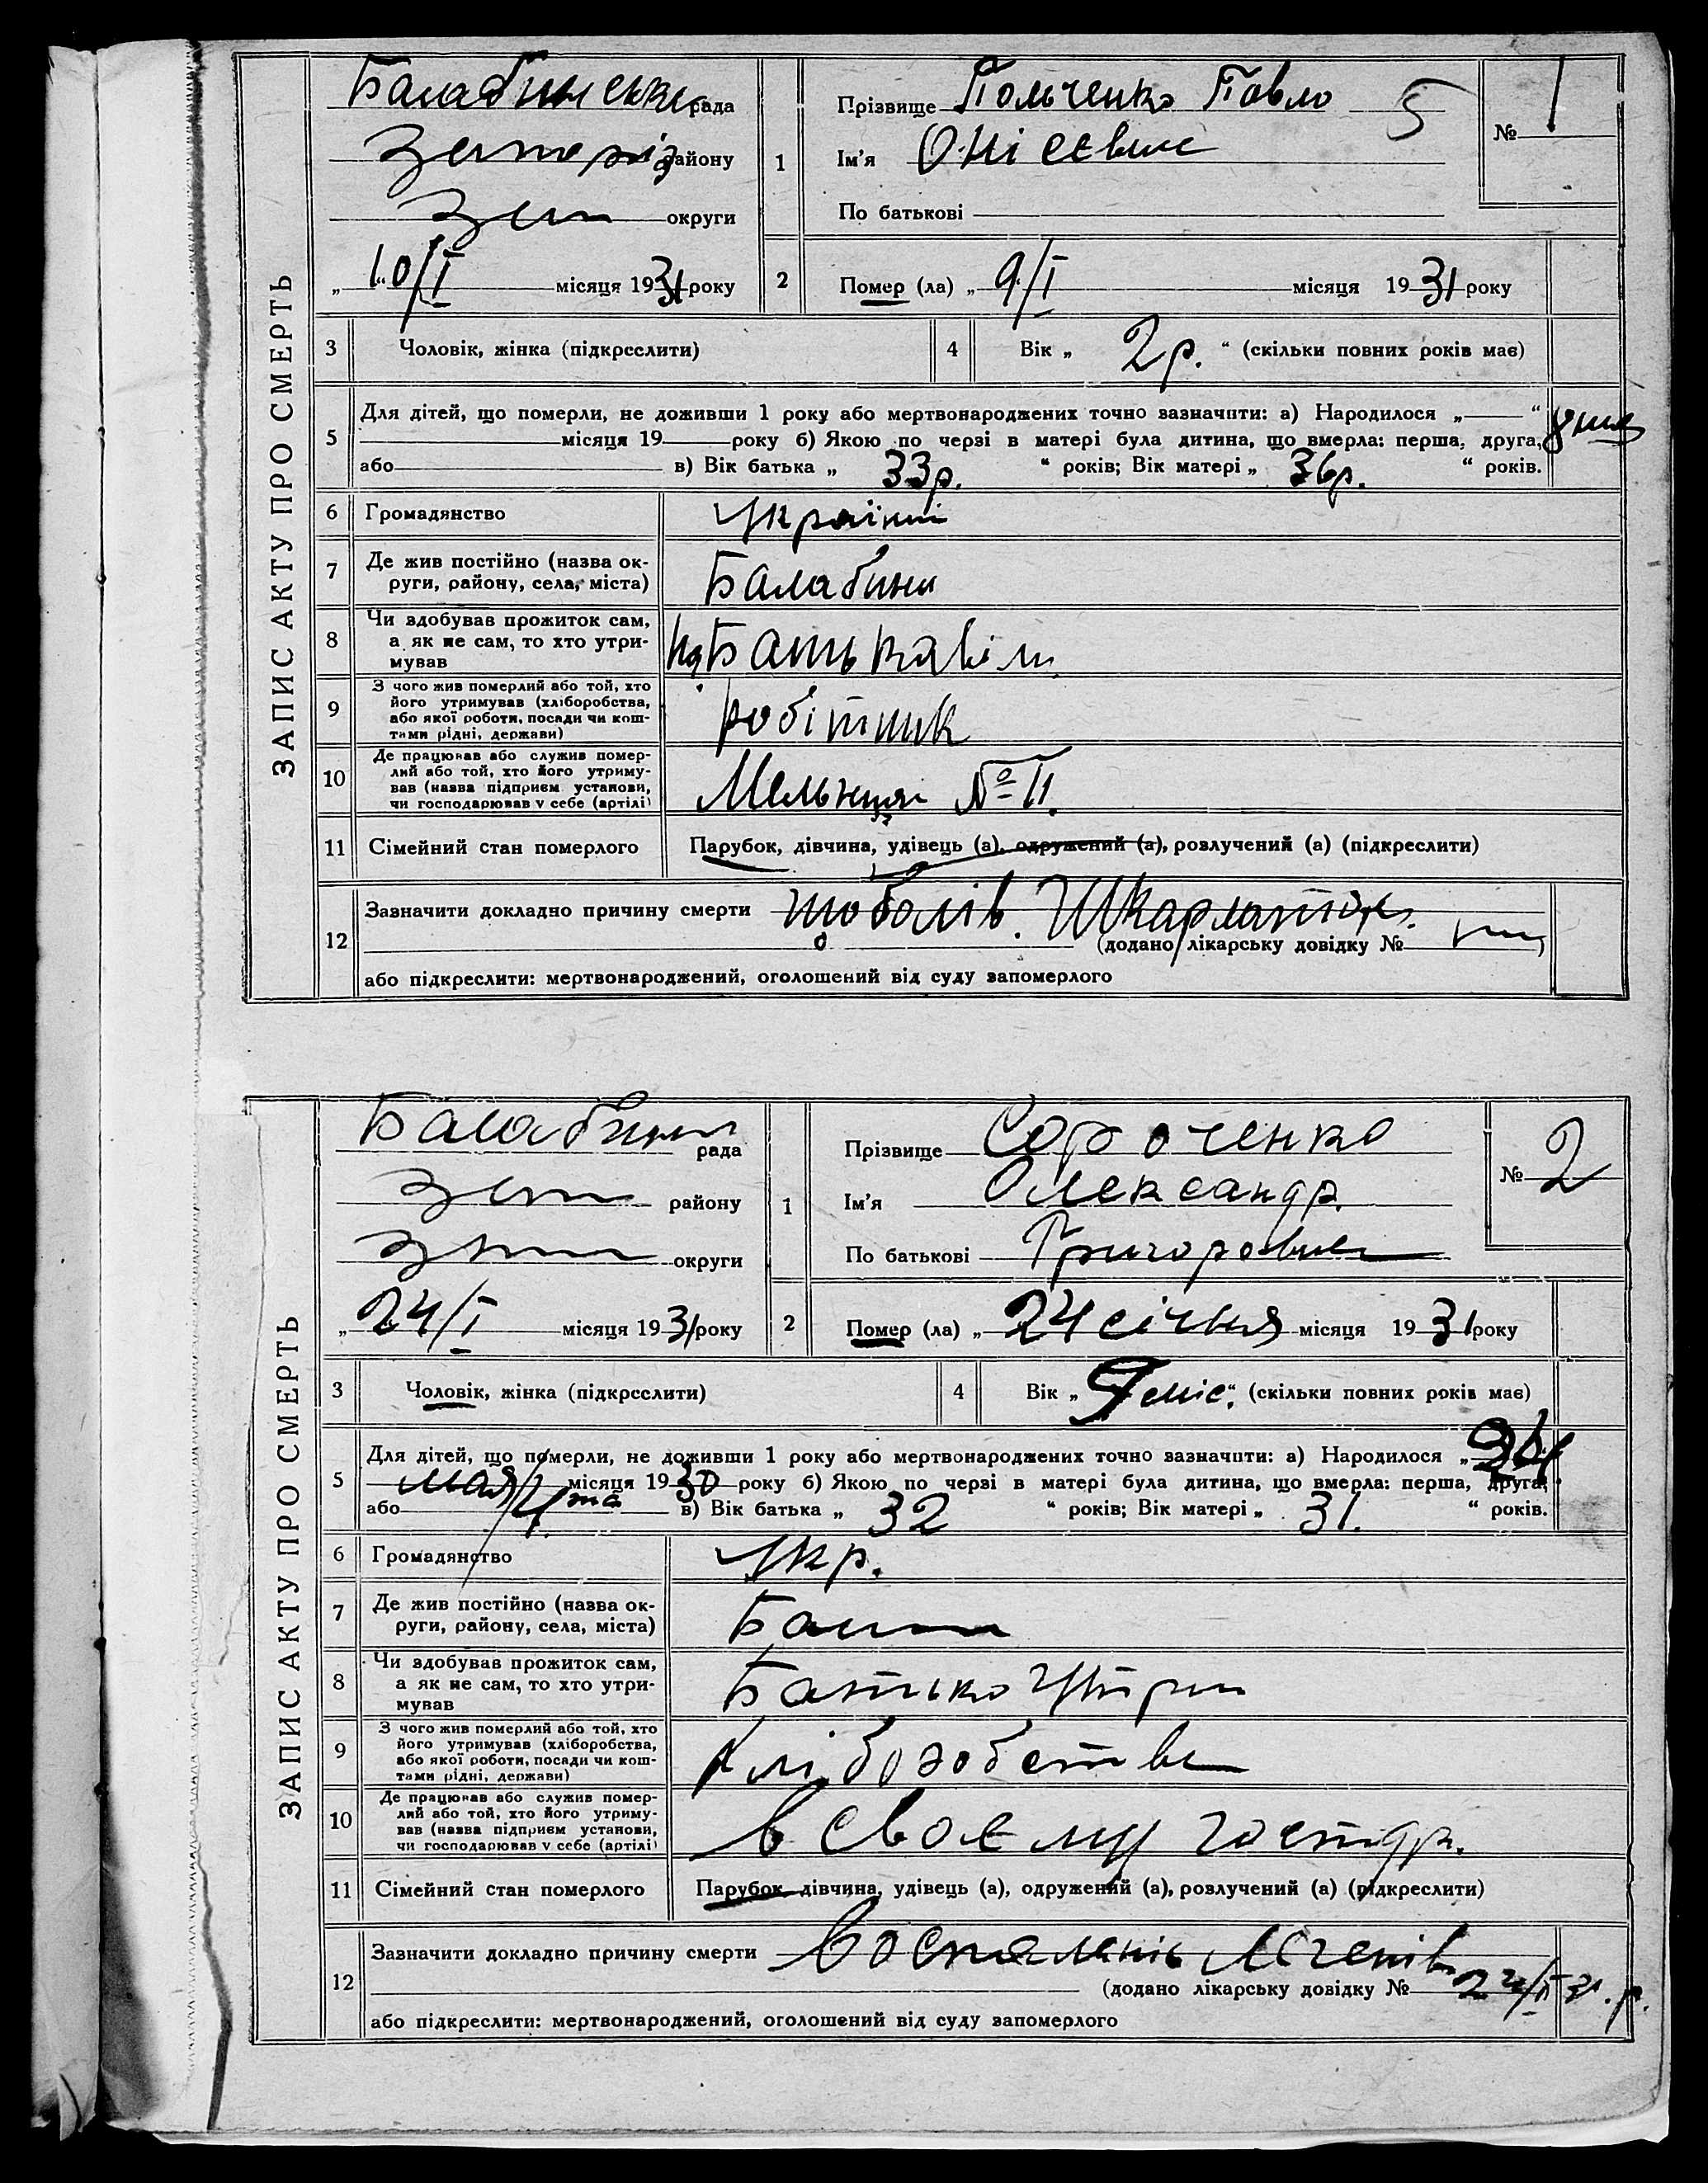 ЗАПИС АКТУ ПРО СМЕРТЬ
Балабинська рада
Запоріз району
Зап округи
„10/I місяця 1931 року
1
Прізвище Польченко Павло 5
Ім'я Онісєвич
По батькові
№ 1
2 Помер (ла) „ 9/I місяця 1931 року
3 Чоловік, жінка (підкреслити)
4 Вік „ 2 р. “ (скільки повних років має)
5 Для дітей, що померли, не доживши 1 року або мертвонароджених точно зазначити: а) Народилося „ “
місяця 19 року б) Якою по черзі в матері була дитина, що вмерла: перша, друга,
або в) Вік батька „ 33р. “ років; Вік матері „ 36р. “ років.
6 Громадянство
7 Де жив постійно (назва округи, району, села, міста) Балабини
8 Чи здобував прожиток сам,
а як не сам, то хто утри-
мував
9 З чого жив померлий або той, хто
його утримував (хліборобства,
або якої роботи, посади чи кош-
тами рідні, держави)
робітник
10 Де працював або служив помер-
лий або той, хто його утриму-
вав (назва підприєм установи,
чи господарював у себе (артілі)
Мельниця № 11.
11 Сімейний стан померлого Парубок, дівчина, удівець (а), одружений (а), розлучений (а) (підкреслити)
12 Зазначити докладно причину смерти
(додано лікарську довідку №
або підкреслити: мертвонароджений, оголошений від суду запомерлого
ЗАПИС АКТУ ПРО СМЕРТЬ
Балабини рада
Зап району
Зап округи
„24/I місяця 1931 року
1
Прізвище Сороченко
Ім'я Олександр.
По батькові Григорович
№ 2
2 Помер (ла) „ 24 січня місяця 1931 року
3 Чоловік, жінка (підкреслити)
4 Вік „ 9 міс.“ (скільки повних років має)
5 Для дітей, що померли, не доживши 1 року або мертвонароджених точно зазначити: а) Народилося „
мая місяця 1930 року б) Якою по черзі в матері була дитина, що вмерла: перша, друга,
або 4та в) Вік батька „ 32 “ років; Вік матері „ 31. “ років.
6 Громадянство Укр.
7 Де жив постійно (назва ок-
руги, району, села, міста)
8 Чи здобував прожиток сам,
а як не сам, то хто утри-
мував
Батько Утрим
9 З чого жив померлий або той, хто
його утримував (хліборобства,
або якої роботи, посади чи кош-
тами рідні, держави)
10 Де працював або служив помер-
лий або той, хто його утриму-
вав (назва підприєм установи,
чи господарював у себе (артілі)
в своєму господр.
11 Сімейний стан померлого Парубок, дівчина, удівець (а), одружений (а), розлучений (а) (підкреслити)
12 Зазначити докладно причину смерти Воспаленія
(додано лікарську довідку №
або підкреслити: мертвонароджений, оголошений від суду запомерлого